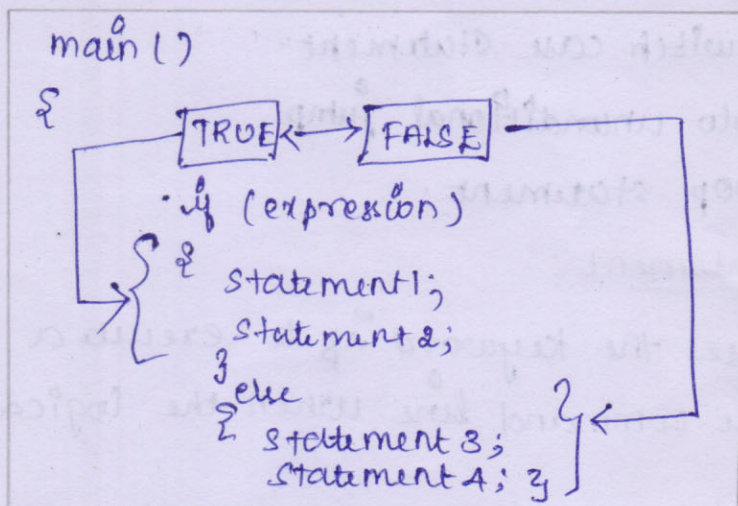 main()
{
TRUE FALSE
if (expression)
{
statement1;
statement2;
}
else
{
statement3;
statement4; }